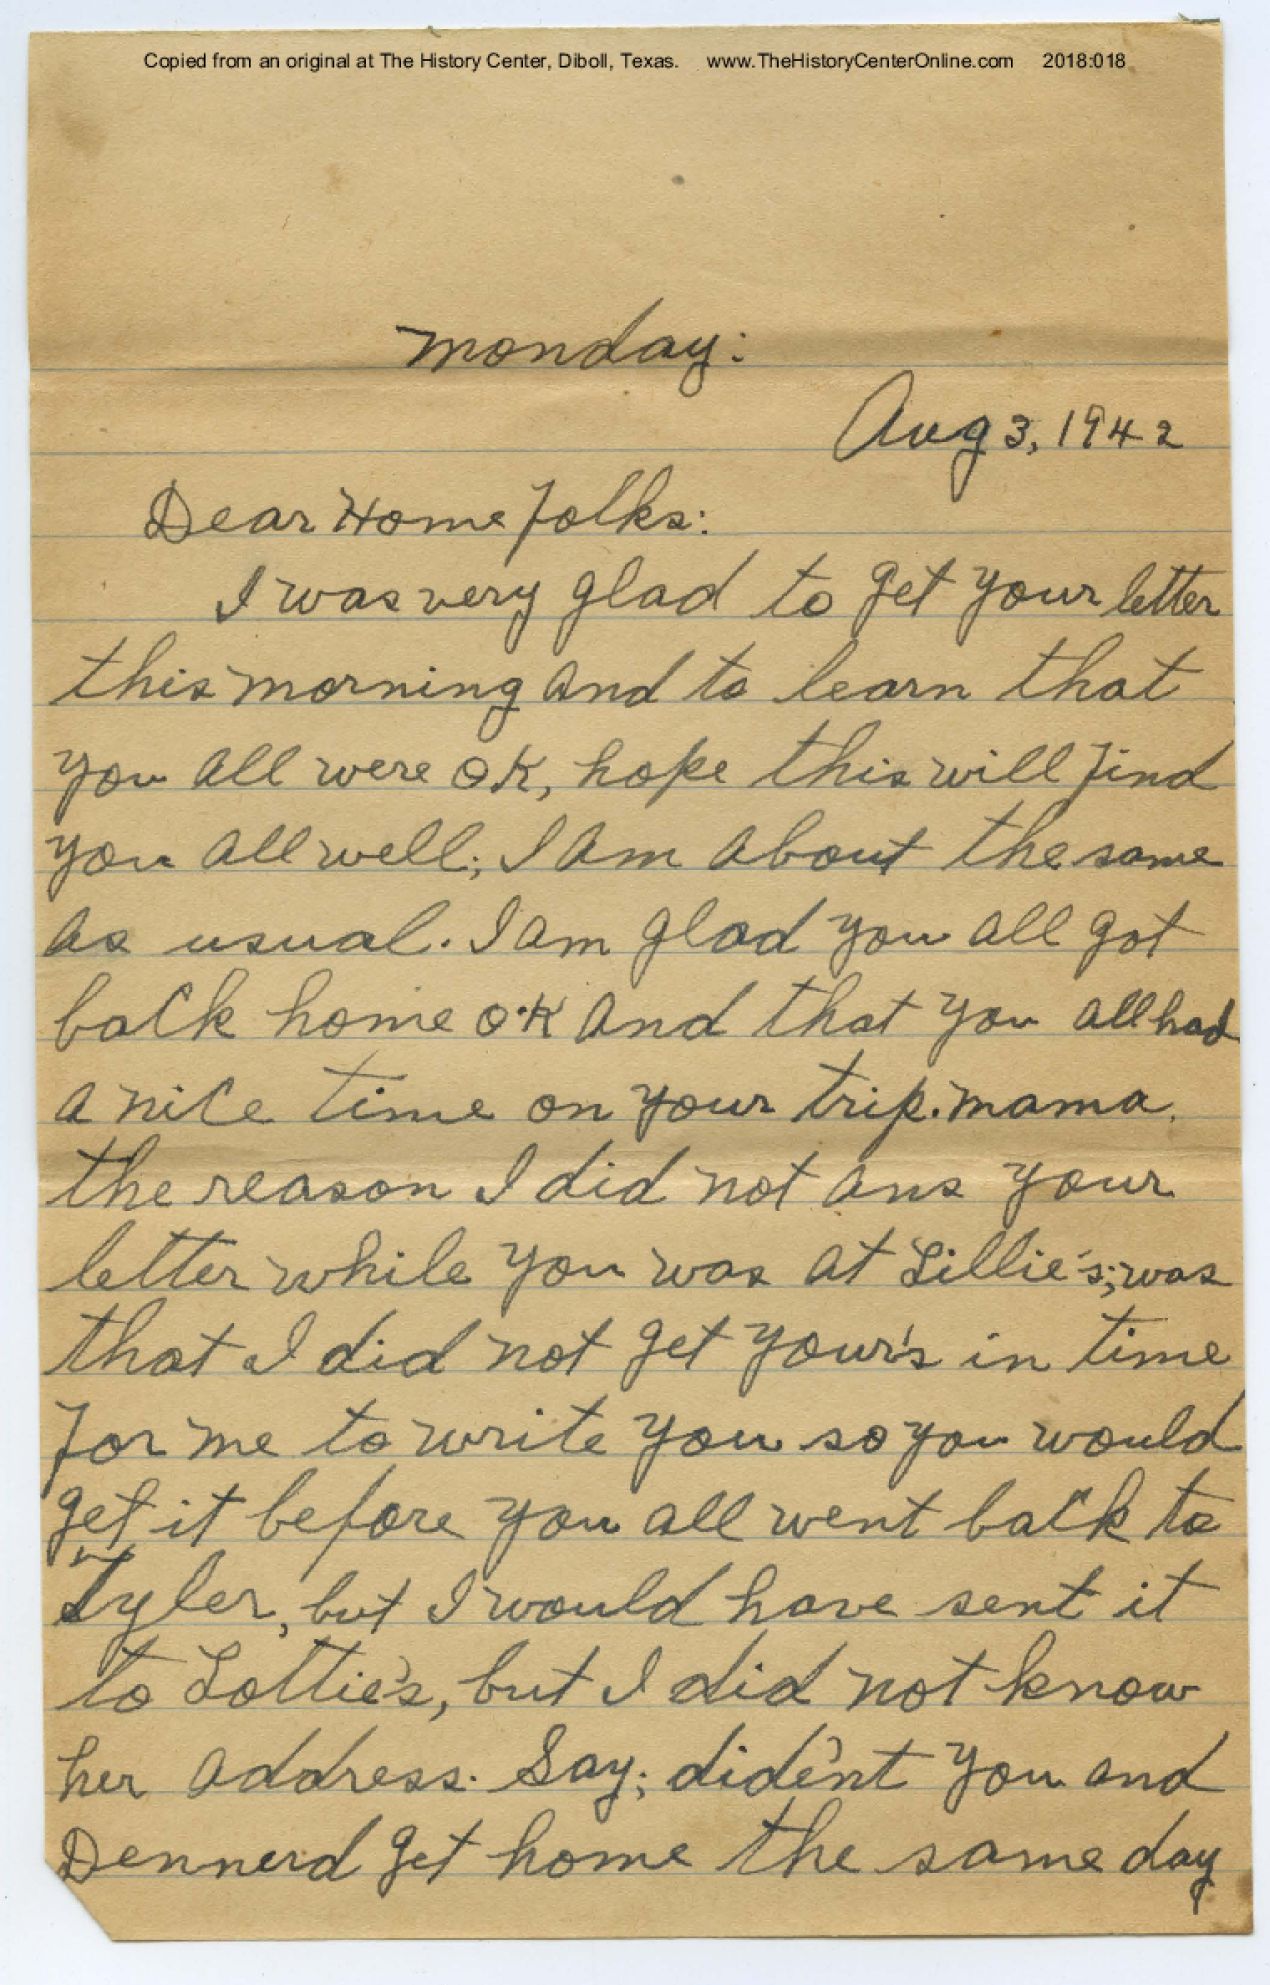 Copied from an original at The History Center, Diboll, Texas. www.TheHistoryCenterOnline.com 2018:018
monday:
Aug 3, 1942
Dear Home folks:
I was very glad to get your letter
this morning and to learn that
you all were OK, hope this will find
you all well; I am about the same
as usual. I am glad you all got
back home O.K and that you all had
a nice time on your trip. mama,
the reason I did not ans your
letter while you was at Lillie's; was
that I did not get your's in time
for me to write you so you would
get it before you all went back to
Tyler, but I would have sent it
to Lottie's, but I did not know
her address. Say; dide'nt you and
Dennerd get home the same day